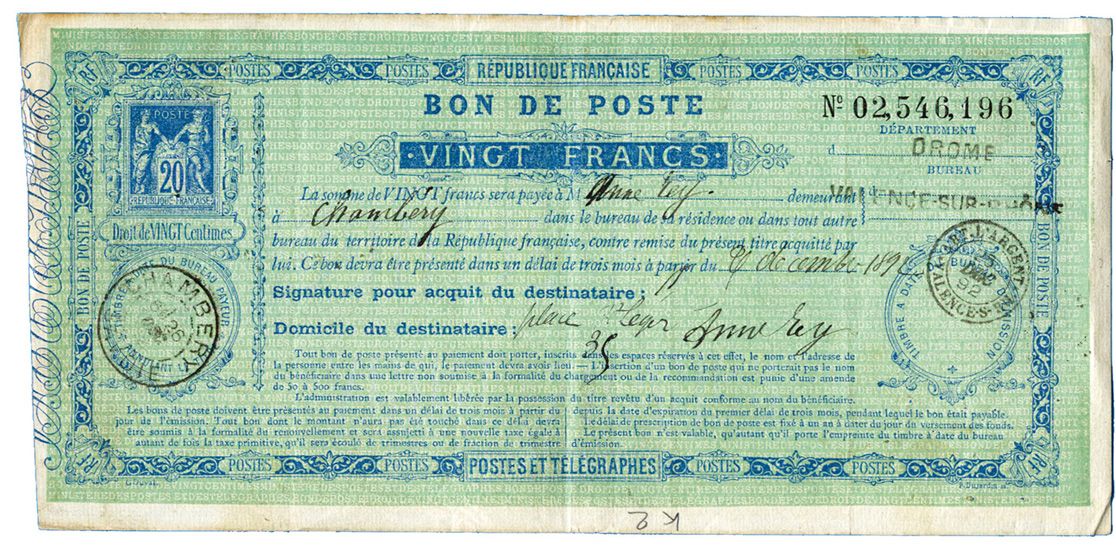 POSTES POSTES POSTES RÉPUBLIQUE FRANÇAISE POSTES POSTES POSTES
RF
RF
BON DE POSTE
Nº 02,546,196
VINGT FRANCS
DÉPARTEMENT
d DROME
BUREAU
VALENCE-SUR-RHÔNE
POSTE
20
RÉPUBLIQUE-FRANÇAISE
Droit de VINGT Centimes
La somme de VINGT francs sera payée à M Anne Rey demeurant
à Chambery dans le bureau de sa résidence ou dans tout autre
bureau du territoire de la République française, contre remise du présent titre acquitté par
lui. Ce bon devra être présenté dans un délai de trois mois à partir du décembre 189
Signature pour acquit du destinataire :
Domicile du destinataire : place
35
Tout bon de poste présenté au paiement doit porter, inscrits dans les espaces réservés à cet effet, le nom et l'adresse de
la personne entre les mains de qui, le paiement devra avoir lieu. — L'insertion d'un bon de poste qui ne porterait pas le nom
du bénéficiaire dans une lettre non soumise à la formalité du chargement ou de la recommandation est punie d'une amende
de 50 à 500 francs.
L'administration est valablement libérée par la possession titre revêtu d'un acquit conforme au nom du bénéficiaire.
Les bons de poste doivent être présentés au paiement dans un délai de trois mois à partir du
jour de l'émission. Tout bon dont le montant n'aura pas été touché dans ce délai devra
être soumis à la formalité du renouvellement et sera assujetti à une nouvelle taxe égale à
autant de fois la taxe primitive, qu'il sera écoulé de trimestres ou de fraction de trimestre
depuis la date d'expiration du premier délai de trois mois, pendant lequel le bon était payable.
Le délai de prescription de bon de poste est fixé à un an à dater du jour du versement des fonds.
Le présent bon n'est valable, qu'autant qu'il porte l'empreinte du timbre à date du bureau
d'émission.
BON DE POSTE
BON DE POSTE
CHAMBERY
TIMBRE A DATE
BUREAU PAYEUR
ART. D'ARGENT
VALENCE-S-RHONE
DEC
92
RF
RF
POSTES POSTES POSTES POSTES ET TÉLÉGRAPHES POSTES POSTES POSTES
J. Dujardin
K 2